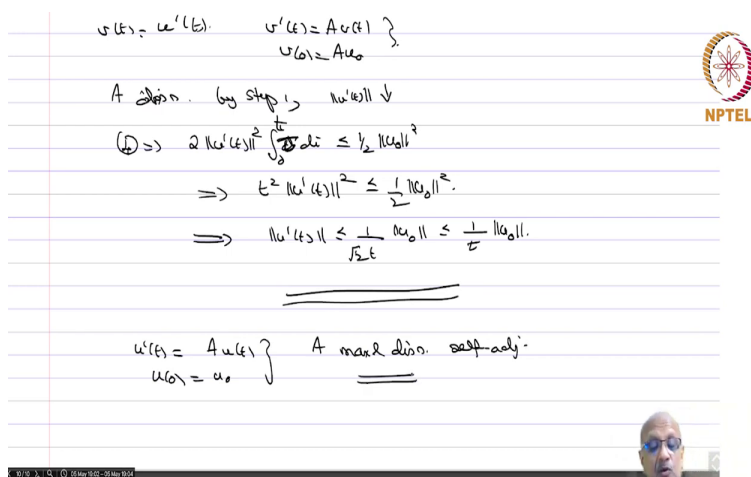 v(t) = u'(t).    v'(t) = A v(t) }
v(0) = A u₀
A diss. by step 1, ‖u'(t)‖ ↓
① ⇒ 2 ‖u'(t)‖² ∫₀ᵗ τ dτ ≤ ½ ‖u₀‖²
⇒ t² ‖u'(t)‖² ≤ 1/2 ‖u₀‖².
⇒ ‖u'(t)‖ ≤ 1/(√2 t) ‖u₀‖ ≤ 1/t ‖u₀‖.
u'(t) = A u(t) } A maxl diss. self-adj.
u(0) = u₀
NPTEL
10/10
05 May 19:02 - 05 May 19:04